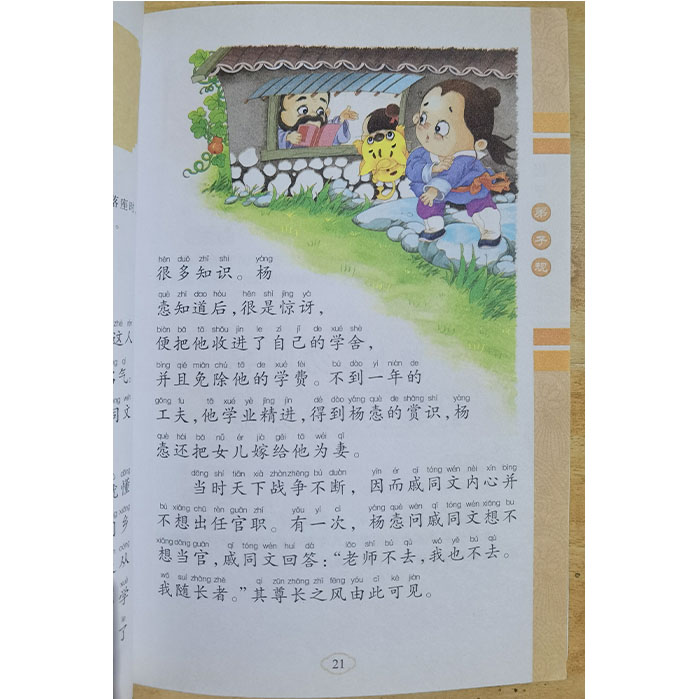 落座时,
zhé rén
这人
气。
同文
懂
乡
从
学
了
弟子规
hěn duō zhī shi yáng
很多知识。杨
què zhī dao hòu hěn shì jīng yà
悫知道后,很是惊讶,
biàn bǎ tā shōu jìn le zì jǐ de xué shè
便把他收进了自己的学舍,
bìng qiě miǎn chú tā de xué fèi bú dào yì nián de
并且免除他的学费。不到一年的
gōng fu tā xué yè jīng jìn dé dào yáng què de shǎng shí yáng
工夫,他学业精进,得到杨悫的赏识,杨
què hái bǎ nǚ ér jià gěi tā wéi qī
悫还把女儿嫁给他为妻。
dāng shí tiān xià zhàn zhēng bú duàn yīn ér qī tóng wén nèi xīn bìng
当时天下战争不断,因而戚同文内心并
bù xiǎng chū rèn guān zhí yǒu yí cì yáng què wèn qī tóng wén xiǎng bu
不想出任官职。有一次,杨悫问戚同文想不
xiǎng dāng guān qī tóng wén huí dá lǎo shī bú qù wǒ yě bú qù
想当官,戚同文回答:“老师不去,我也不去。
wǒ suí zhǎng zhě qí zūn zhǎng zhī fēng yóu cǐ kě jiàn
我随长者。”其尊长之风由此可见。
21